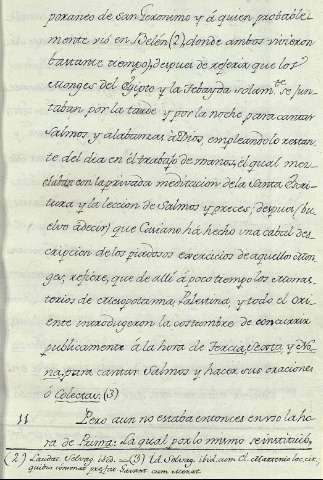 poraneo de San Geronimo y á quien probable-
mente vió en Belén (2), donde ambos vivieron
bastante tiempo), despues de referir que los
Monges del Egipto y la Tebayda solam.te se jun-
taban por la tarde y por la noche para cantar
Salmos y alabanzas a Dios, empleando lo restan-
te del dia en el trabajo de manos, el qual mez-
claban con la privada meditacion de la Santa Escri-
tura y la leccion de Salmos y preces; despues (bu-
elvo á decir) que Casiano há hecho una cabal des-
cripcion de los piadosos exercicios de aquellos Mon-
ges, refiere, que de alli á poco tiempo los Monas-
terios de Mesopotamia, Palestina, y todo el Ori-
ente introdugeron la costumbre de concurrir
publicamente á la hora de Tercia, Sexta, y No-
na, para cantar Salmos y hacer sus oraciones
ó Colectas. (3)
11 Pero aun no estaba entonces en uso la ho-
ra de Prima: la qual por lo mismo se instituió,
(2) ibid. (3) Id. ibid. cum Cl. loc. cit.
cum